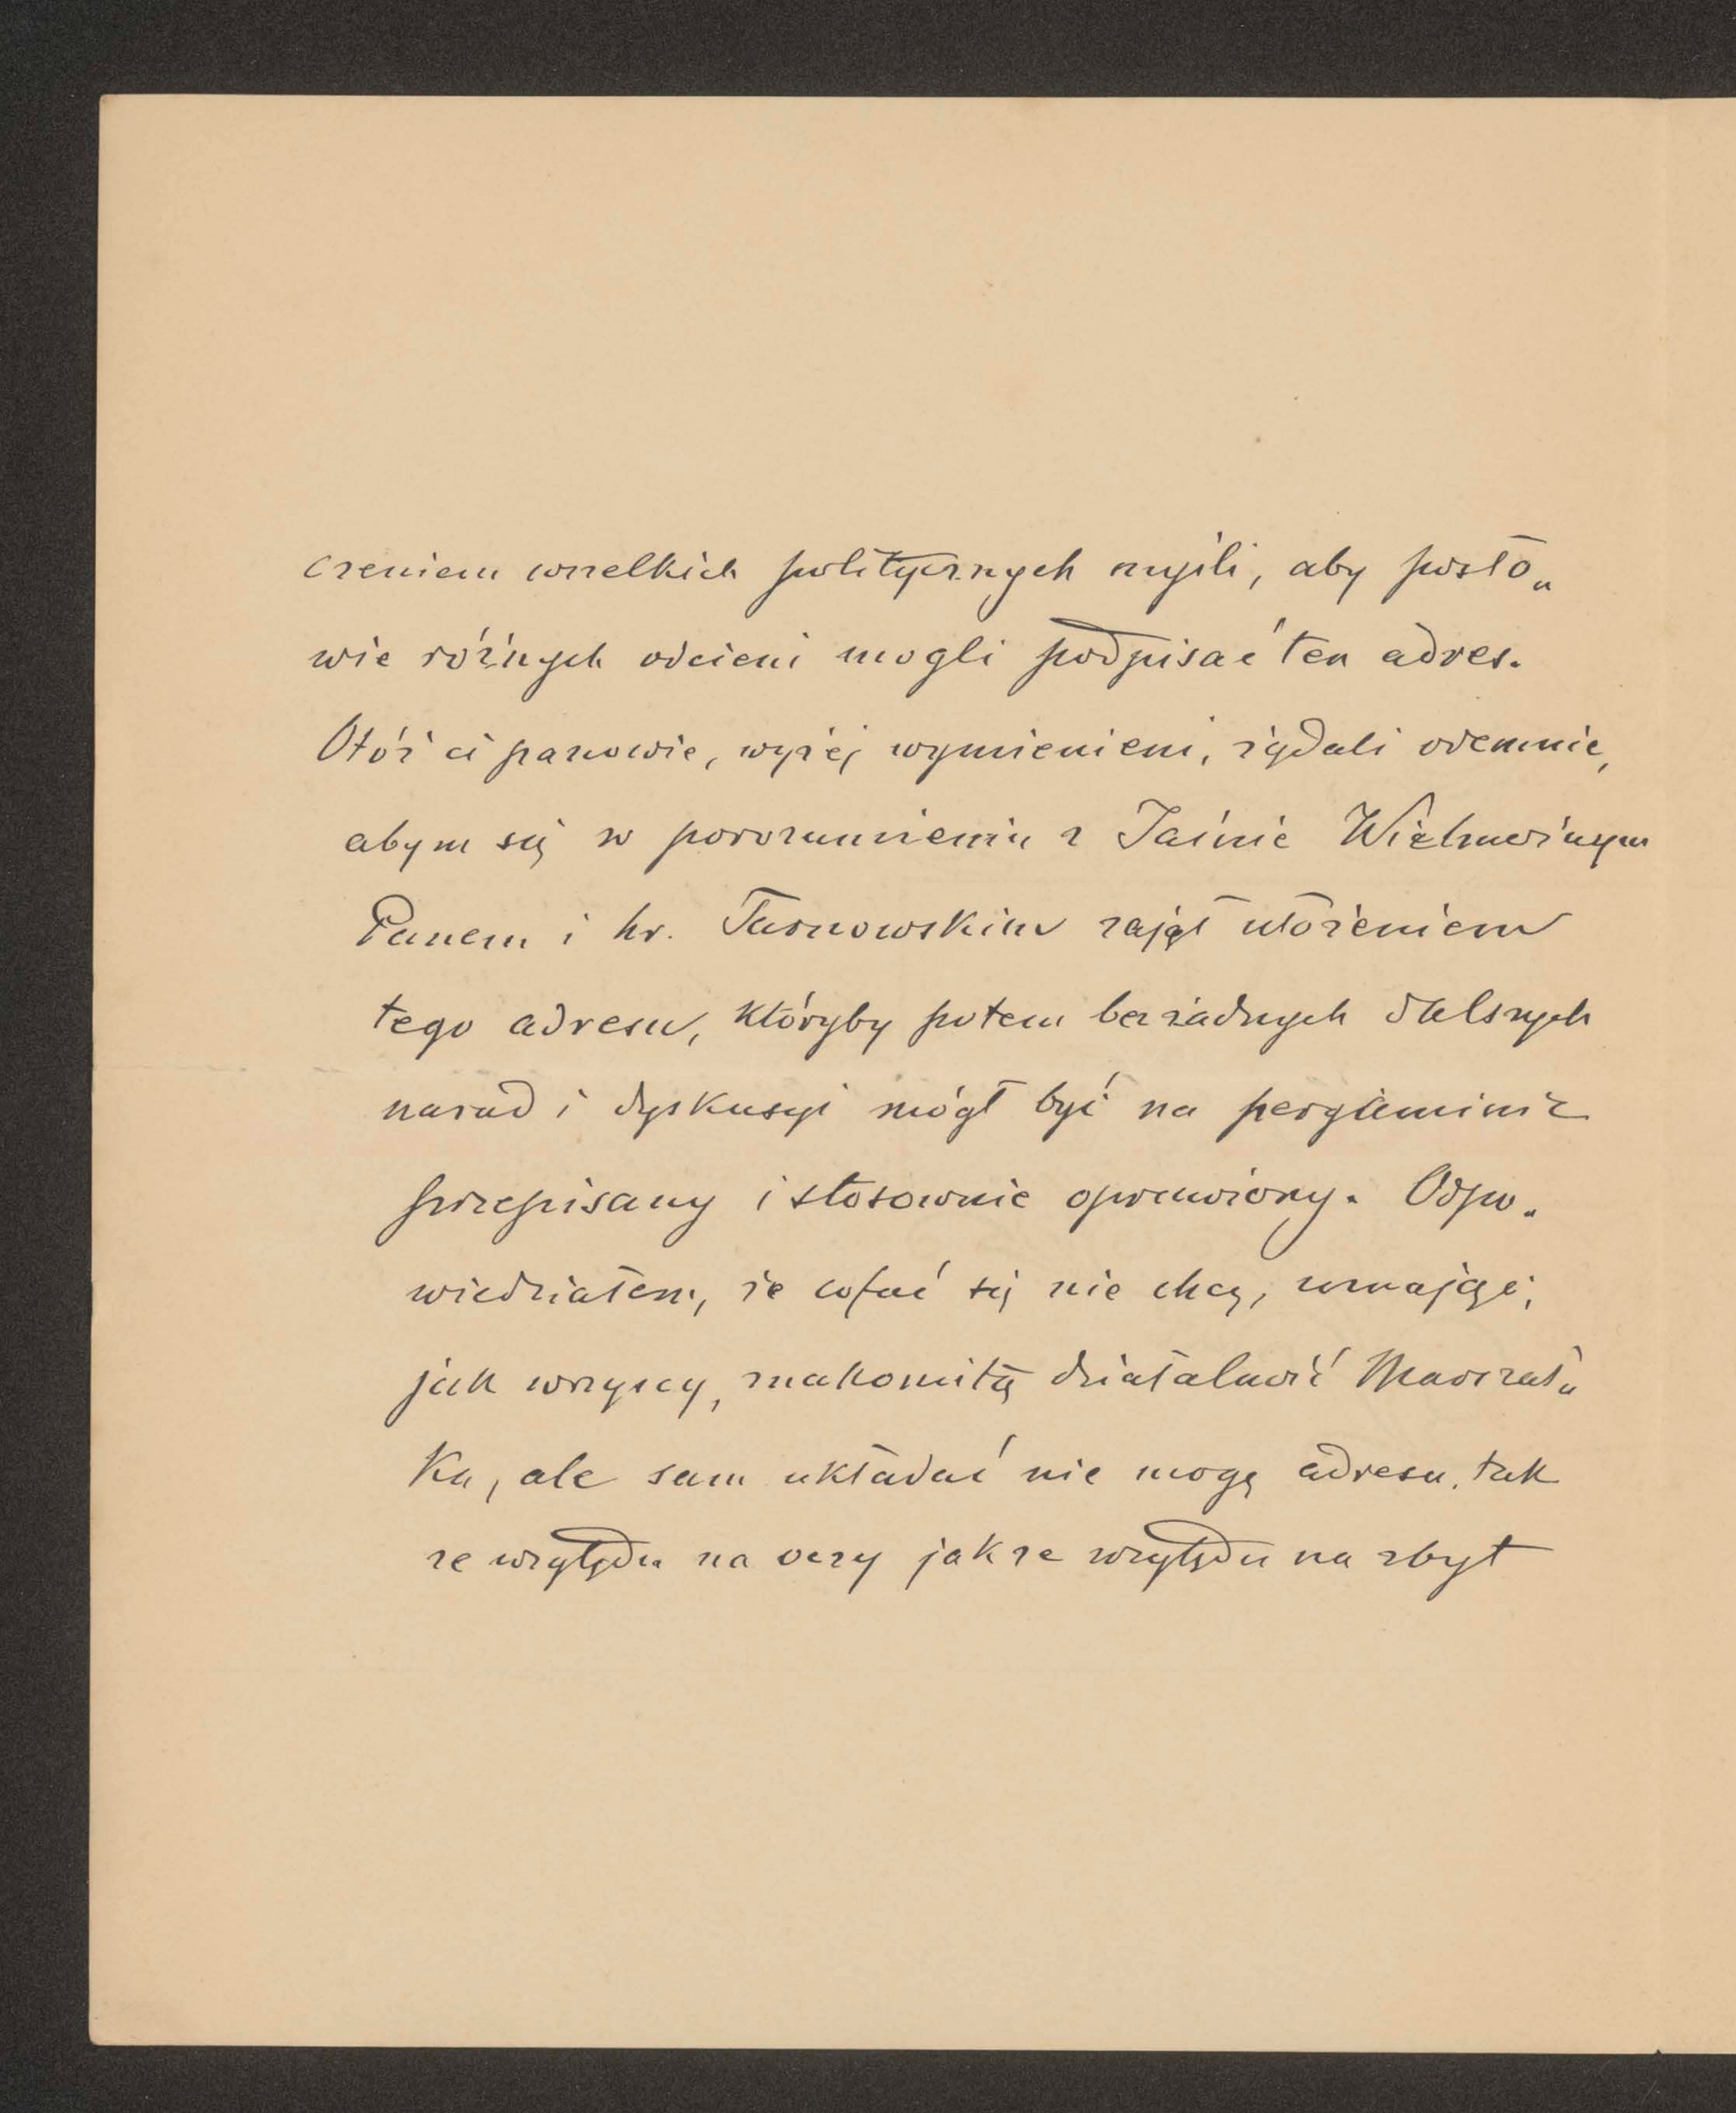 czeniem wszelkich politycznych myśli, aby posło„
wie różnych odcieni mogli podpisać ten adres.
Otóż ci panowie, wyżej wymienieni, żądali odemnie,
abym się w porozumieniu z Jaśnie Wielmożnym
Panem i hr. Tarnowskim zajął ułożeniem
tego adresu, któryby potem bez żadnych dalszych
narad i dyskusyi mógł być na pergaminie
przepisany i stosownie oprawiony. Odpo„
wiedziałem, że cofać się nie chcę, uznając,
jak wszyscy, znakomitą działalność Marszał„
ka, ale sam układać nie mogę adresu, tak
ze względu na oczy jak ze względu na zbyt